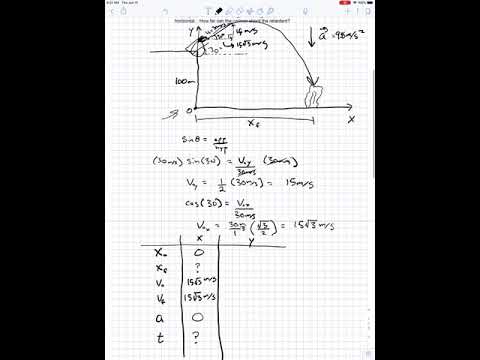 horizontal. How far can the cannon shoot the retardant?
y
15 m/s
30°
15√3 m/s
a = 9.8 m/s²
100m
0
x
x_f
sinθ = opp/hyp
(30m/s) sin(30) = V_oy/30m/s (30m/s)
V_y = 1/2 (30m/s) = 15m/s
cos(30) = V_ox/30m/s
V_ox = 30m/1 s (√3/2) = 15√3 m/s
x y
X_o 0
X_f ?
V_o 15√3 m/s
V_f 15√3 m/s
a 0
t ?